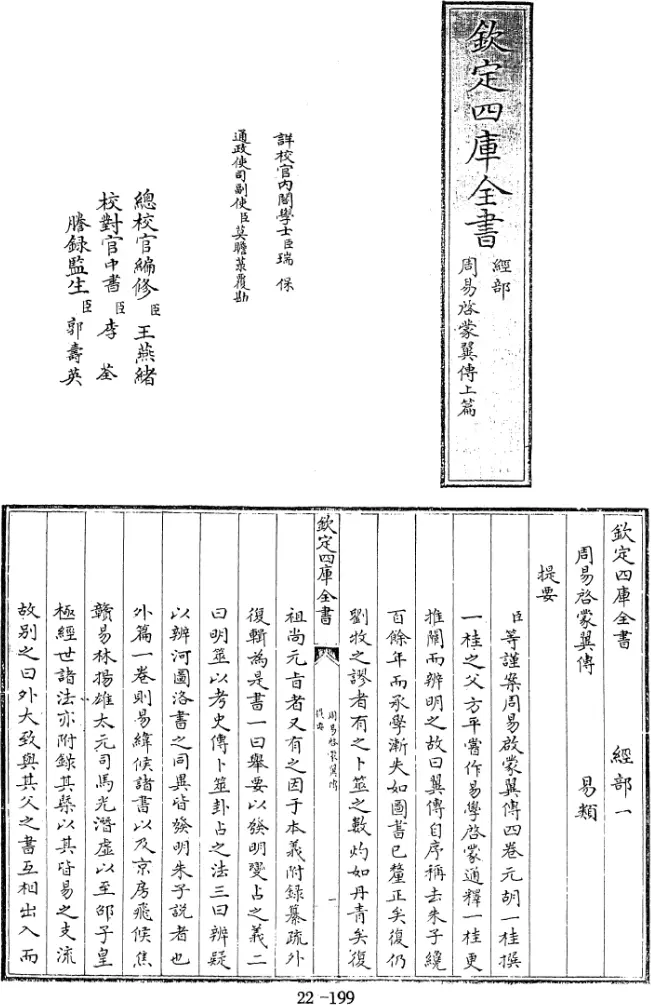 欽定四庫全書
經部
周易啓蒙翼傳上篇
詳校官內閣學士臣瑞保
通政使司副使臣莫瞻菉覆勘
總校官編修臣王燕緒
校對官中書臣李荃
謄録監生臣郭壽英
欽定四庫全書 經部一
周易啓蒙翼傳 易類
提要
臣等謹案周易啟蒙翼傳四卷元胡一桂撰
一桂之父方平嘗作易學啓蒙通釋一桂更
推闡而辨明之故曰翼傳自序稱去朱子纔
百餘年而承學漸失如圖書已釐正矣復仍
劉牧之謬者有之卜筮之數灼如丹青矣復
欽定四庫全書
周易啓蒙翼傳
提要
一
祖尚元㫖者又有之因于本義附録纂疏外
復輯為是書一曰舉要以發明變占之義二
曰明筮以考史傳卜筮卦占之法三曰辨疑
以辨河圖洛書之同異皆發明朱子説者也
外篇一卷則易緯候諸書以及京房飛候焦
贛易林揚雄太元司馬光潛虛以至邵子皇
極經世諸法亦附錄其槩以其皆易之支流
故别之曰外大致與其父之書互相出入而
22-199